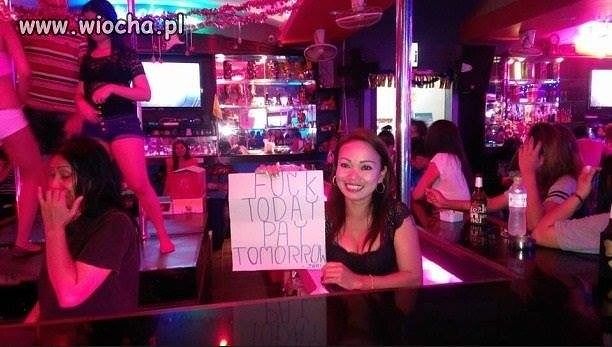 www.wiocha.pl
FUCK
TODAY
PAY
TOMORROW